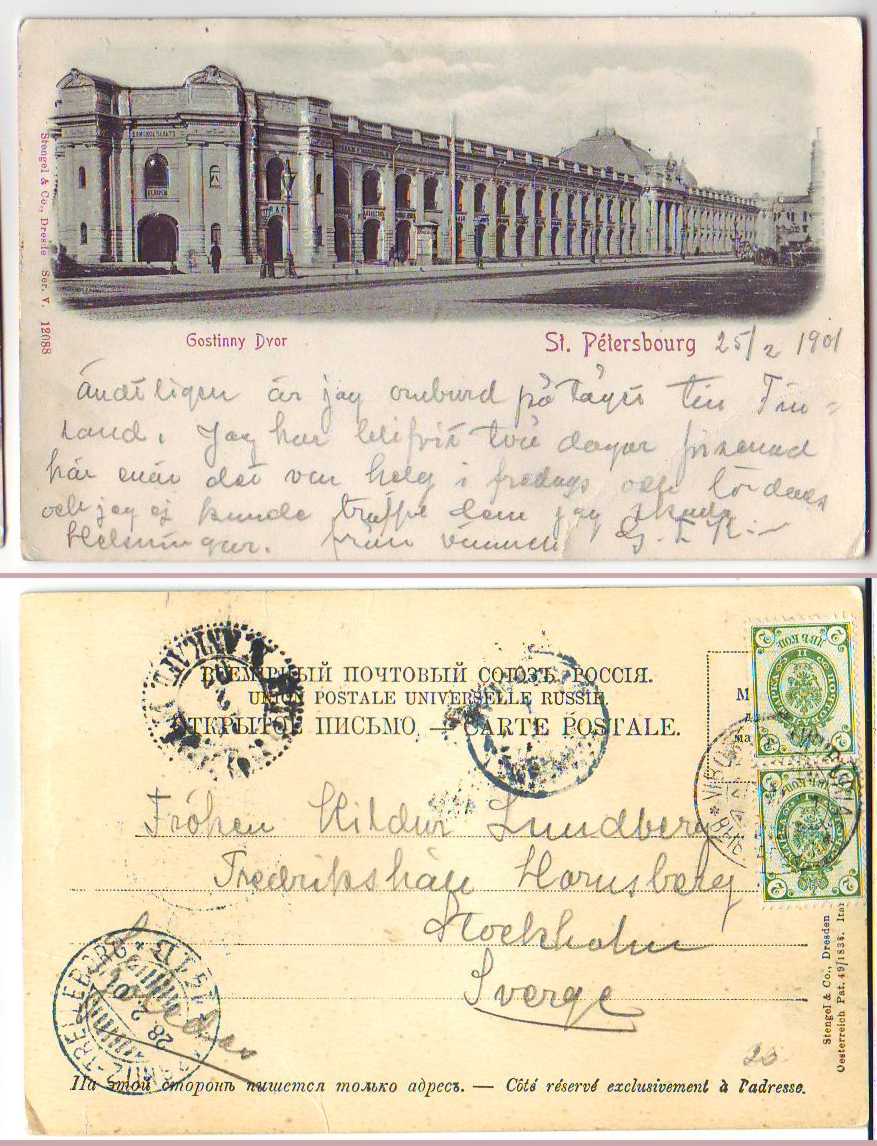 Stengel & Co., Dresde Ser. V. 12088
Gostinny Dvor
St. Pétersbourg 25/2 1901
Ändtligen är jag ombord på tåget till Fin-
land. Jag har blifvit två dagar försenad
här enär det var helg i fredags och lördags
och jag ej kunde träffa dem jag skulle
Helsningar. från vännen
ВСЕМІРНЫЙ ПОЧТОВЫЙ СОЮЗЪ. РОССІЯ.
UNION POSTALE UNIVERSELLE RUSSIE
ОТКРЫТОЕ ПИСЬМО. — CARTE POSTALE.
Fröken Hildur Lundberg
Fredrikshäll Hornsberg
Stockholm
Sverge
28 2 01
20
На этой сторонѣ пишется только адресъ. — Côté réservé exclusivement à l'adresse.
Stengel & Co., Dresden
Oesterreich Pat. 49/1836.